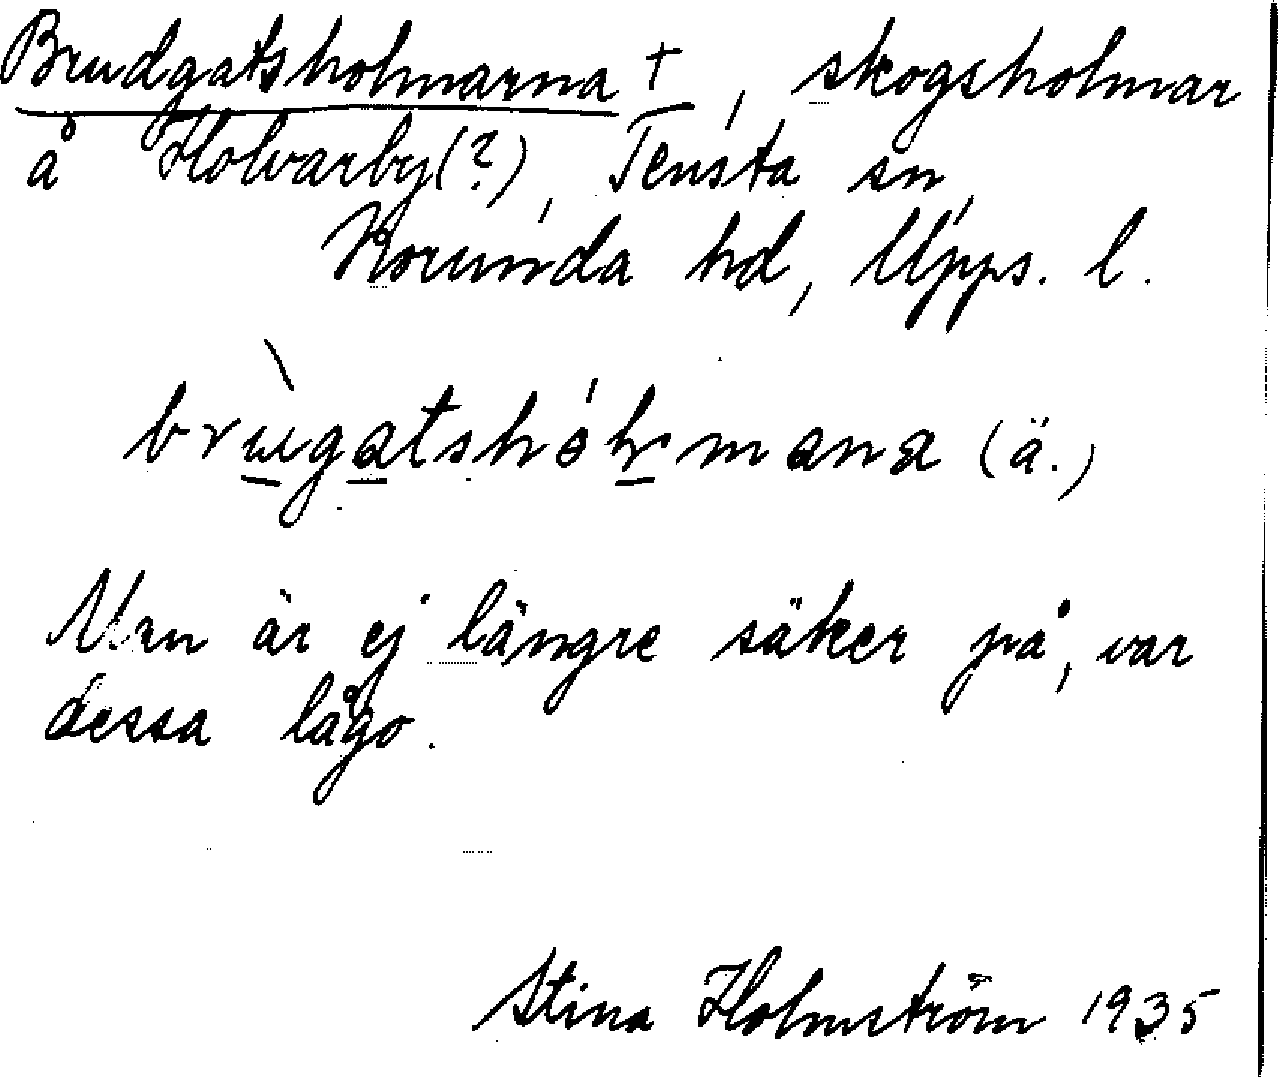 Brudgatsholmarna †, skogsholmar
å Holvarby(?), Tensta sn,
Norunda hd, Upps. l.
(ä.)
Man är ej längre säker på, var
dessa lågo.
Stina Holmström 1935